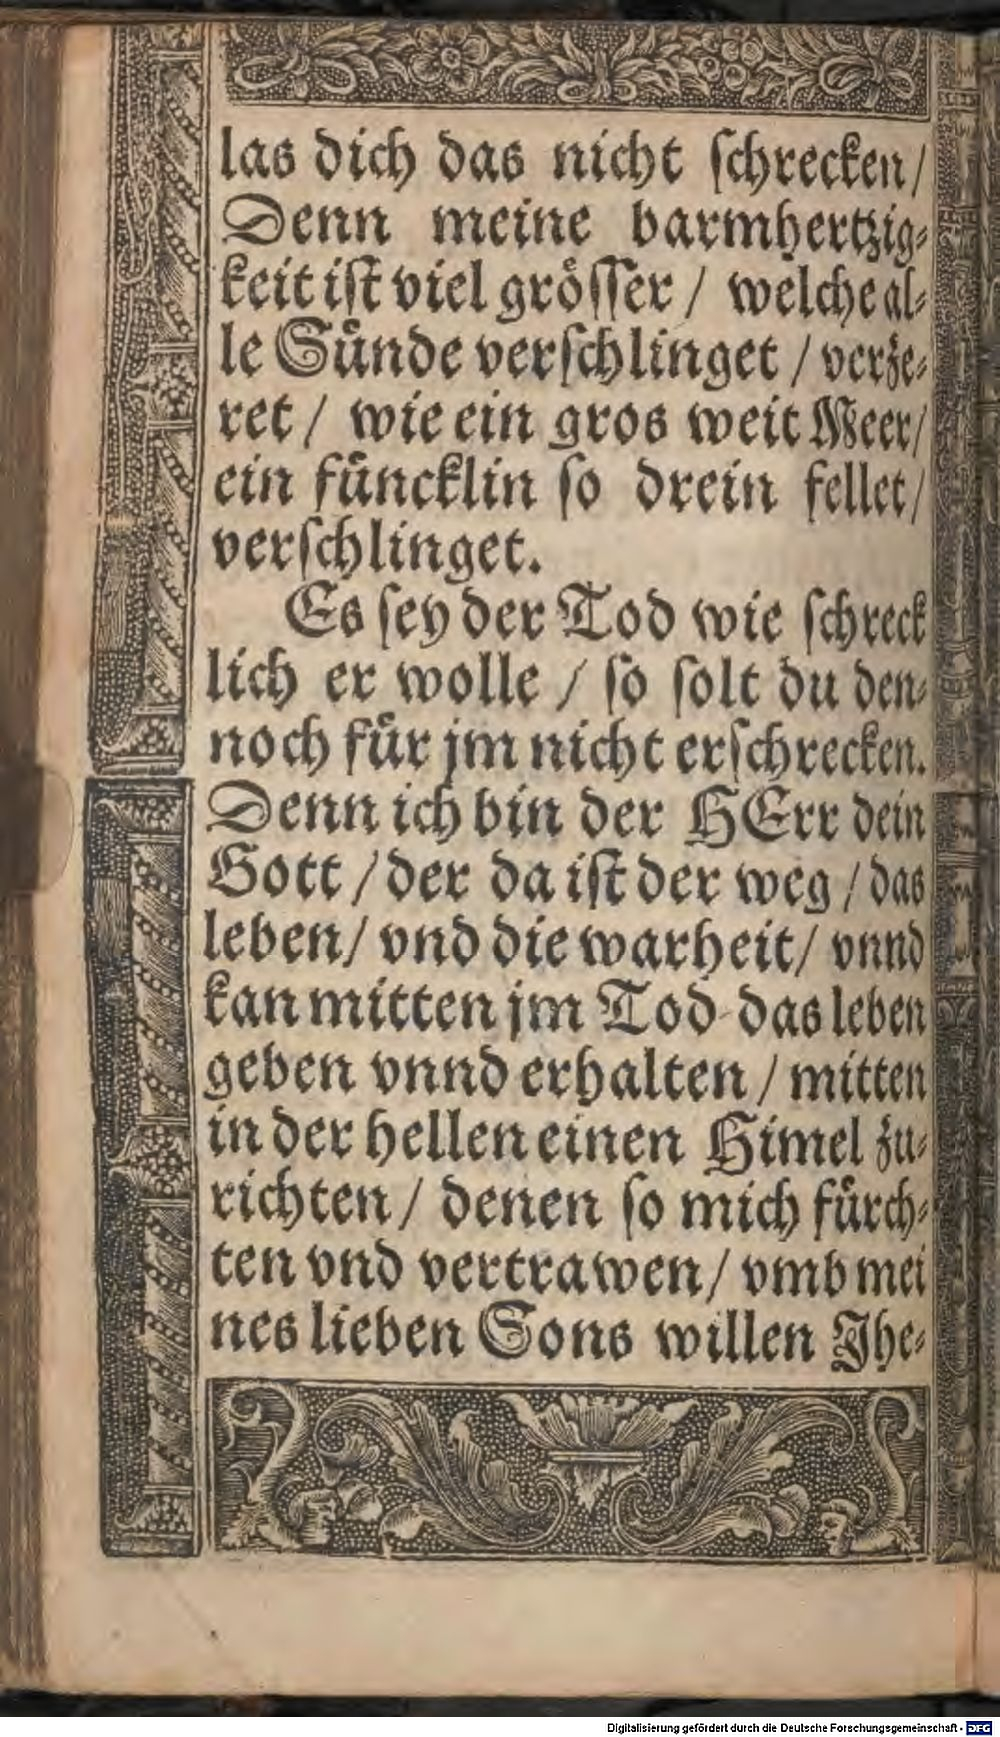 las dich das nicht ſchrecken/
Denn meine barmhertzig⸗
keit iſt viel groͤſſer / welche al⸗
le Suͤnde verſchlinget / verze⸗
ret / wie ein gros weit Meer/
ein fuͤncklin ſo drein fellet/
verſchlinget.
Es ſey der Tod wie ſchreck
lich er wolle / ſo ſolt du den⸗
noch fuͤr jm nicht erſchrecken.
Denn ich bin der HErr dein
Gott / der da iſt der weg / das
leben/ vnd die warheit/ vnnd
kan mitten jm Tod das leben
geben vnnd erhalten / mitten
in der hellen einen Himel zu⸗
richten / denen ſo mich fuͤrch⸗
ten vnd vertrawen/ vmb mei
nes lieben Sons willen Jhe⸗
Digitalisierung gefördert durch die Deutsche Forschungsgemeinschaft - DFG